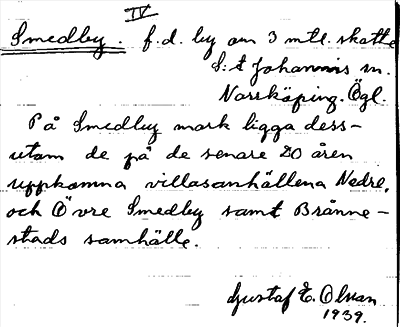 IV
Smedby. f.d. by om 3 mtl. skatte
S:t Johannis sn.
Norrköping. Ögl.
På Smedby mark ligga dess-
utom de på de senare 20 åren
uppkomna villasamhällena Nedre,
och Övre Smedby samt Bränne-
stads samhälle.
Gustaf E. Olsson
1939.